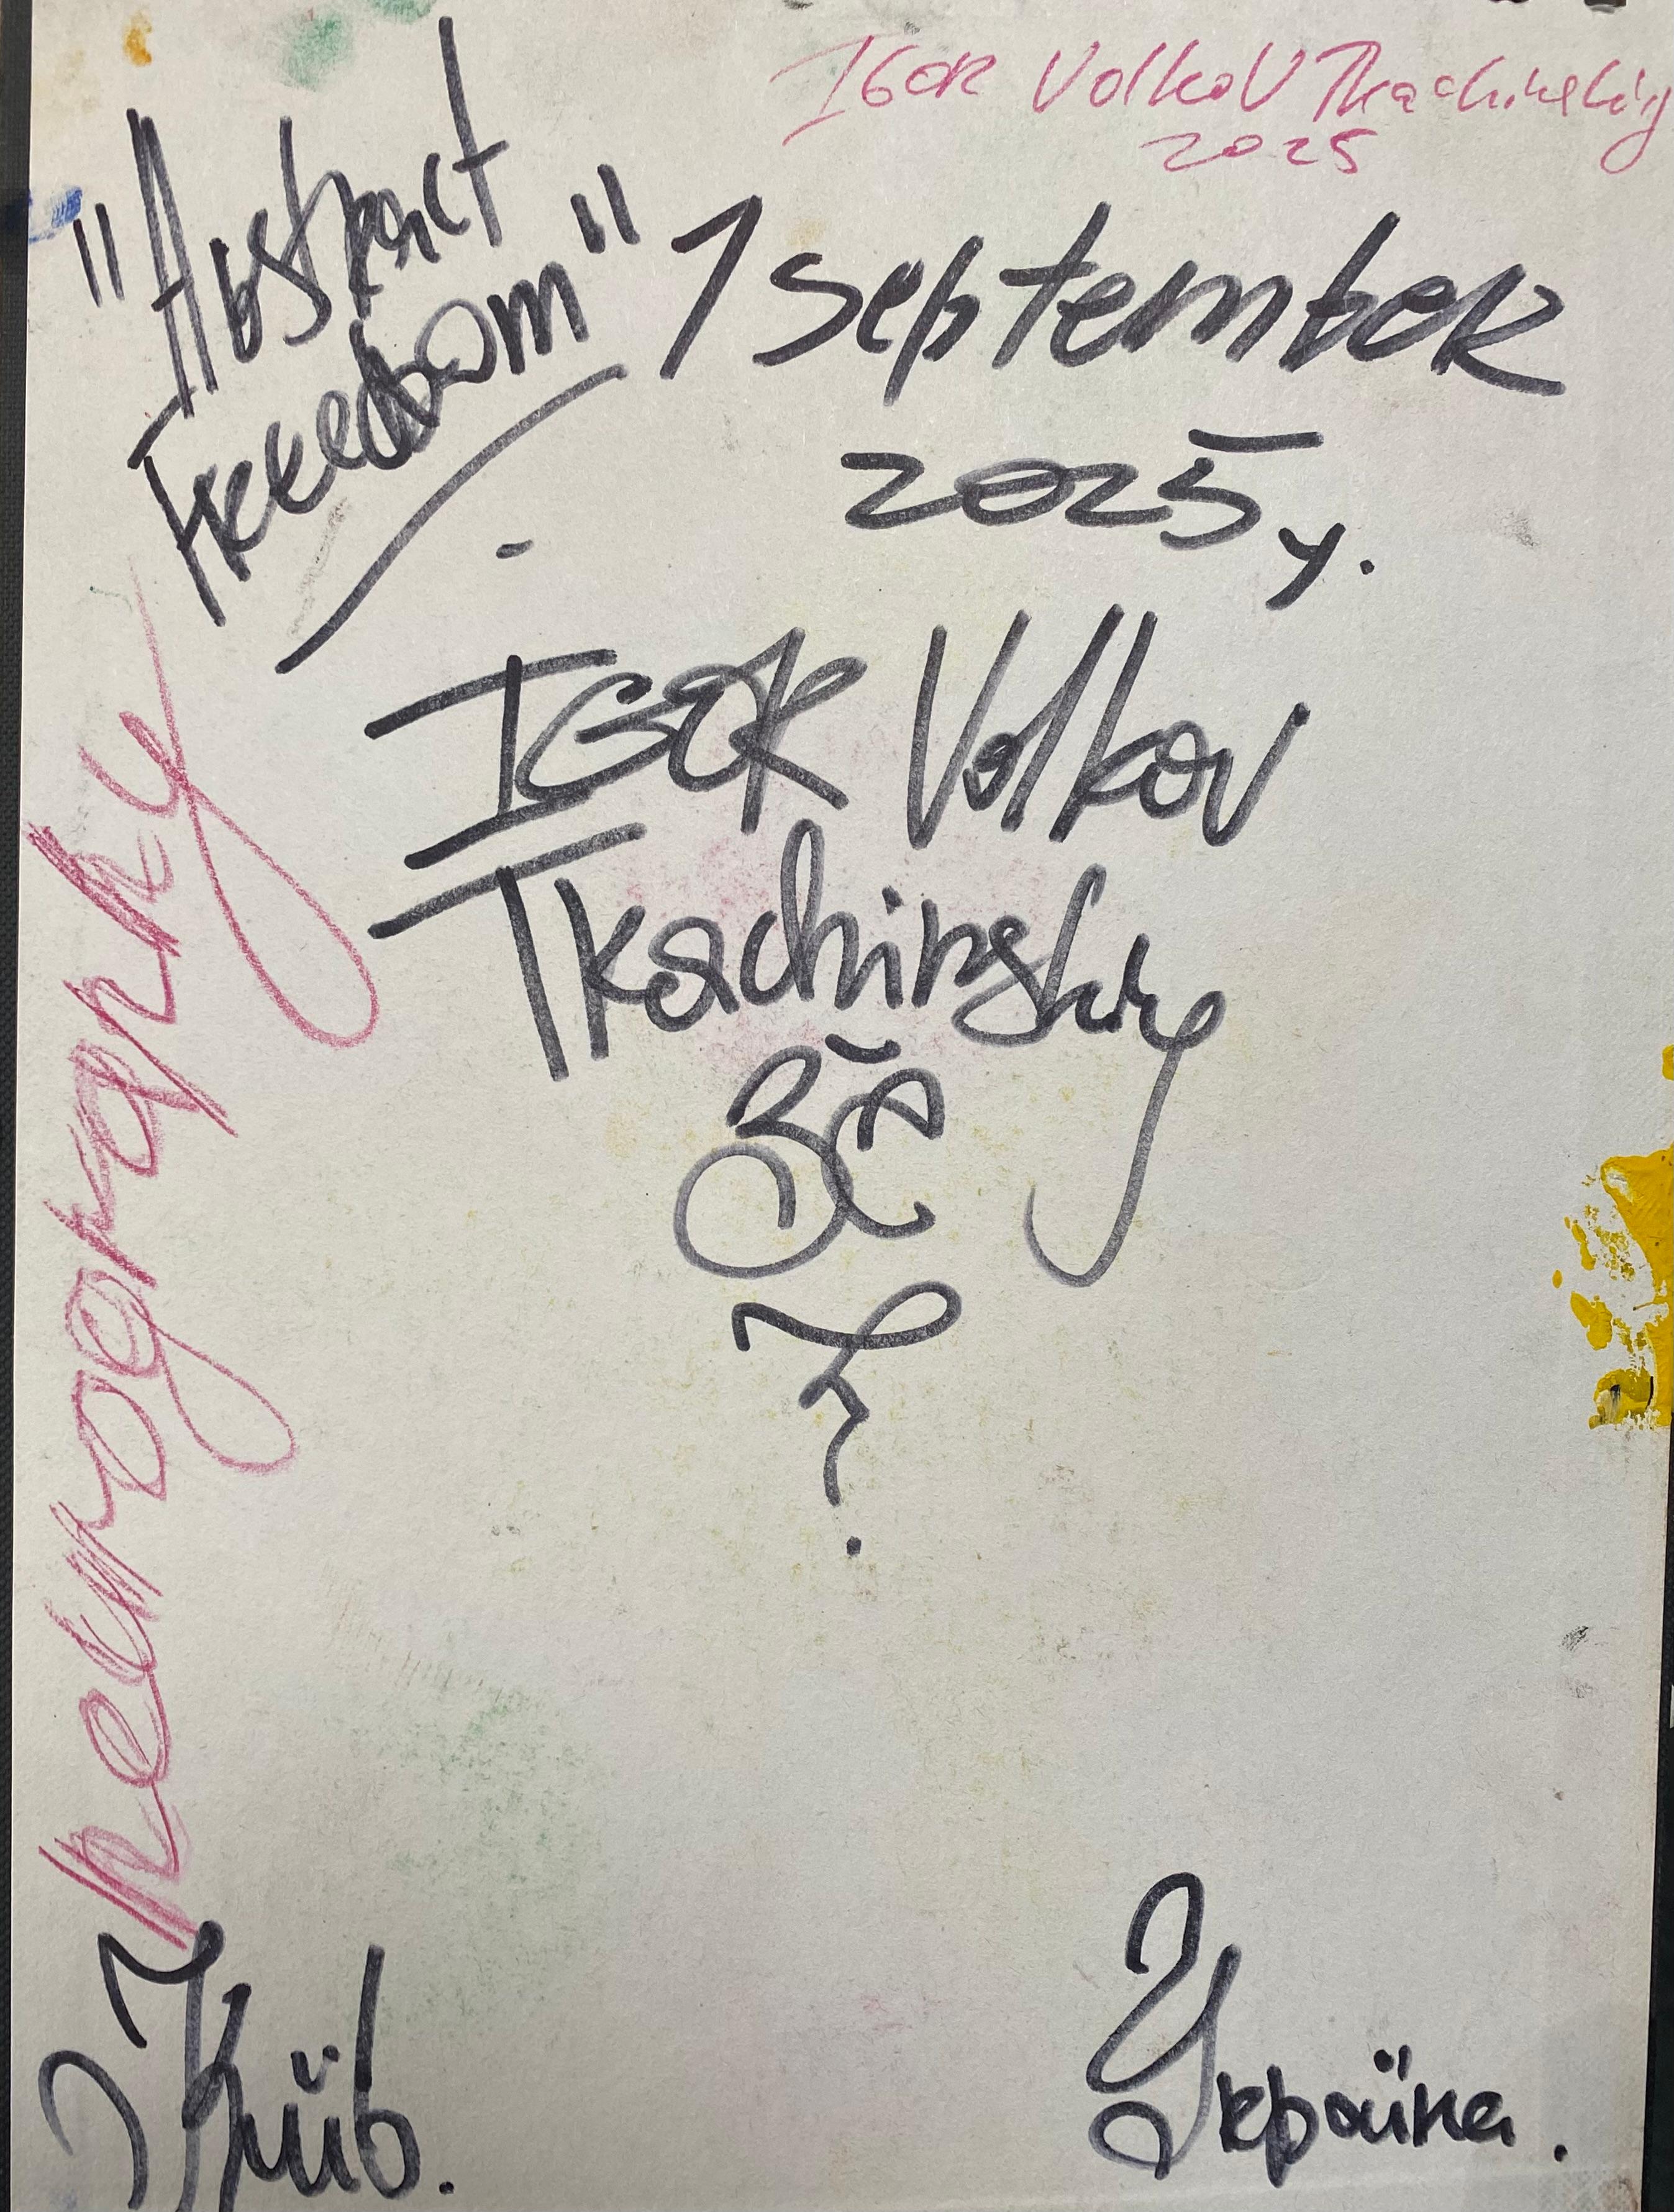 Igor Volkov Tkachinskiy
2025
"Abstract
Freedom"
1 September
2025 y.
Igor Volkov
Tkachinskiy
Київ.
Україна.